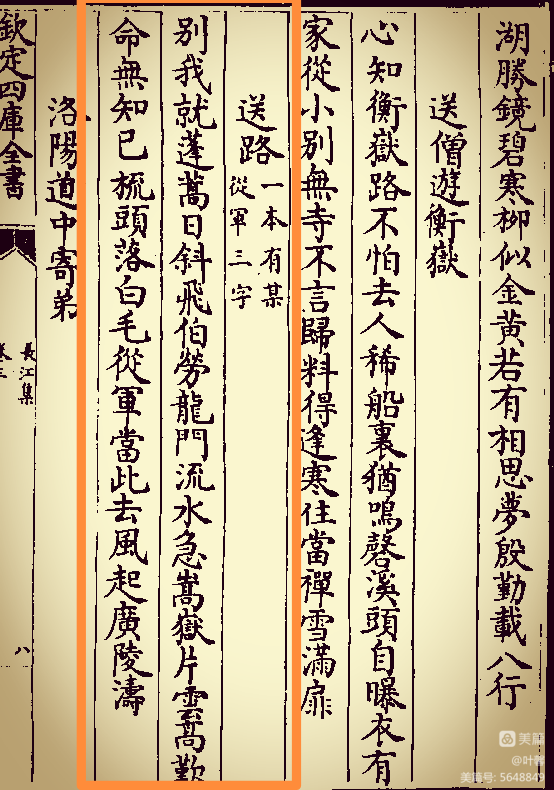 湖勝鏡碧寒栁似金黄若有相思夢殷勤載八行
送僧遊衡嶽
心知衡嶽路不怕去人稀船裏猶鳴磬溪頭自曝衣有
家從小别無寺不言歸料得逢寒住當禪雪滿扉
送路一本有某從軍三字
别我就蓬蒿日斜飛伯勞龍門流水急嵩嶽片雲髙歎
命無知已梳頭落白毛從軍當此去風起廣陵濤
洛陽道中寄弟
欽定四庫全書
長江集
卷三
八
美篇
@叶馨
美篇号: 5648849